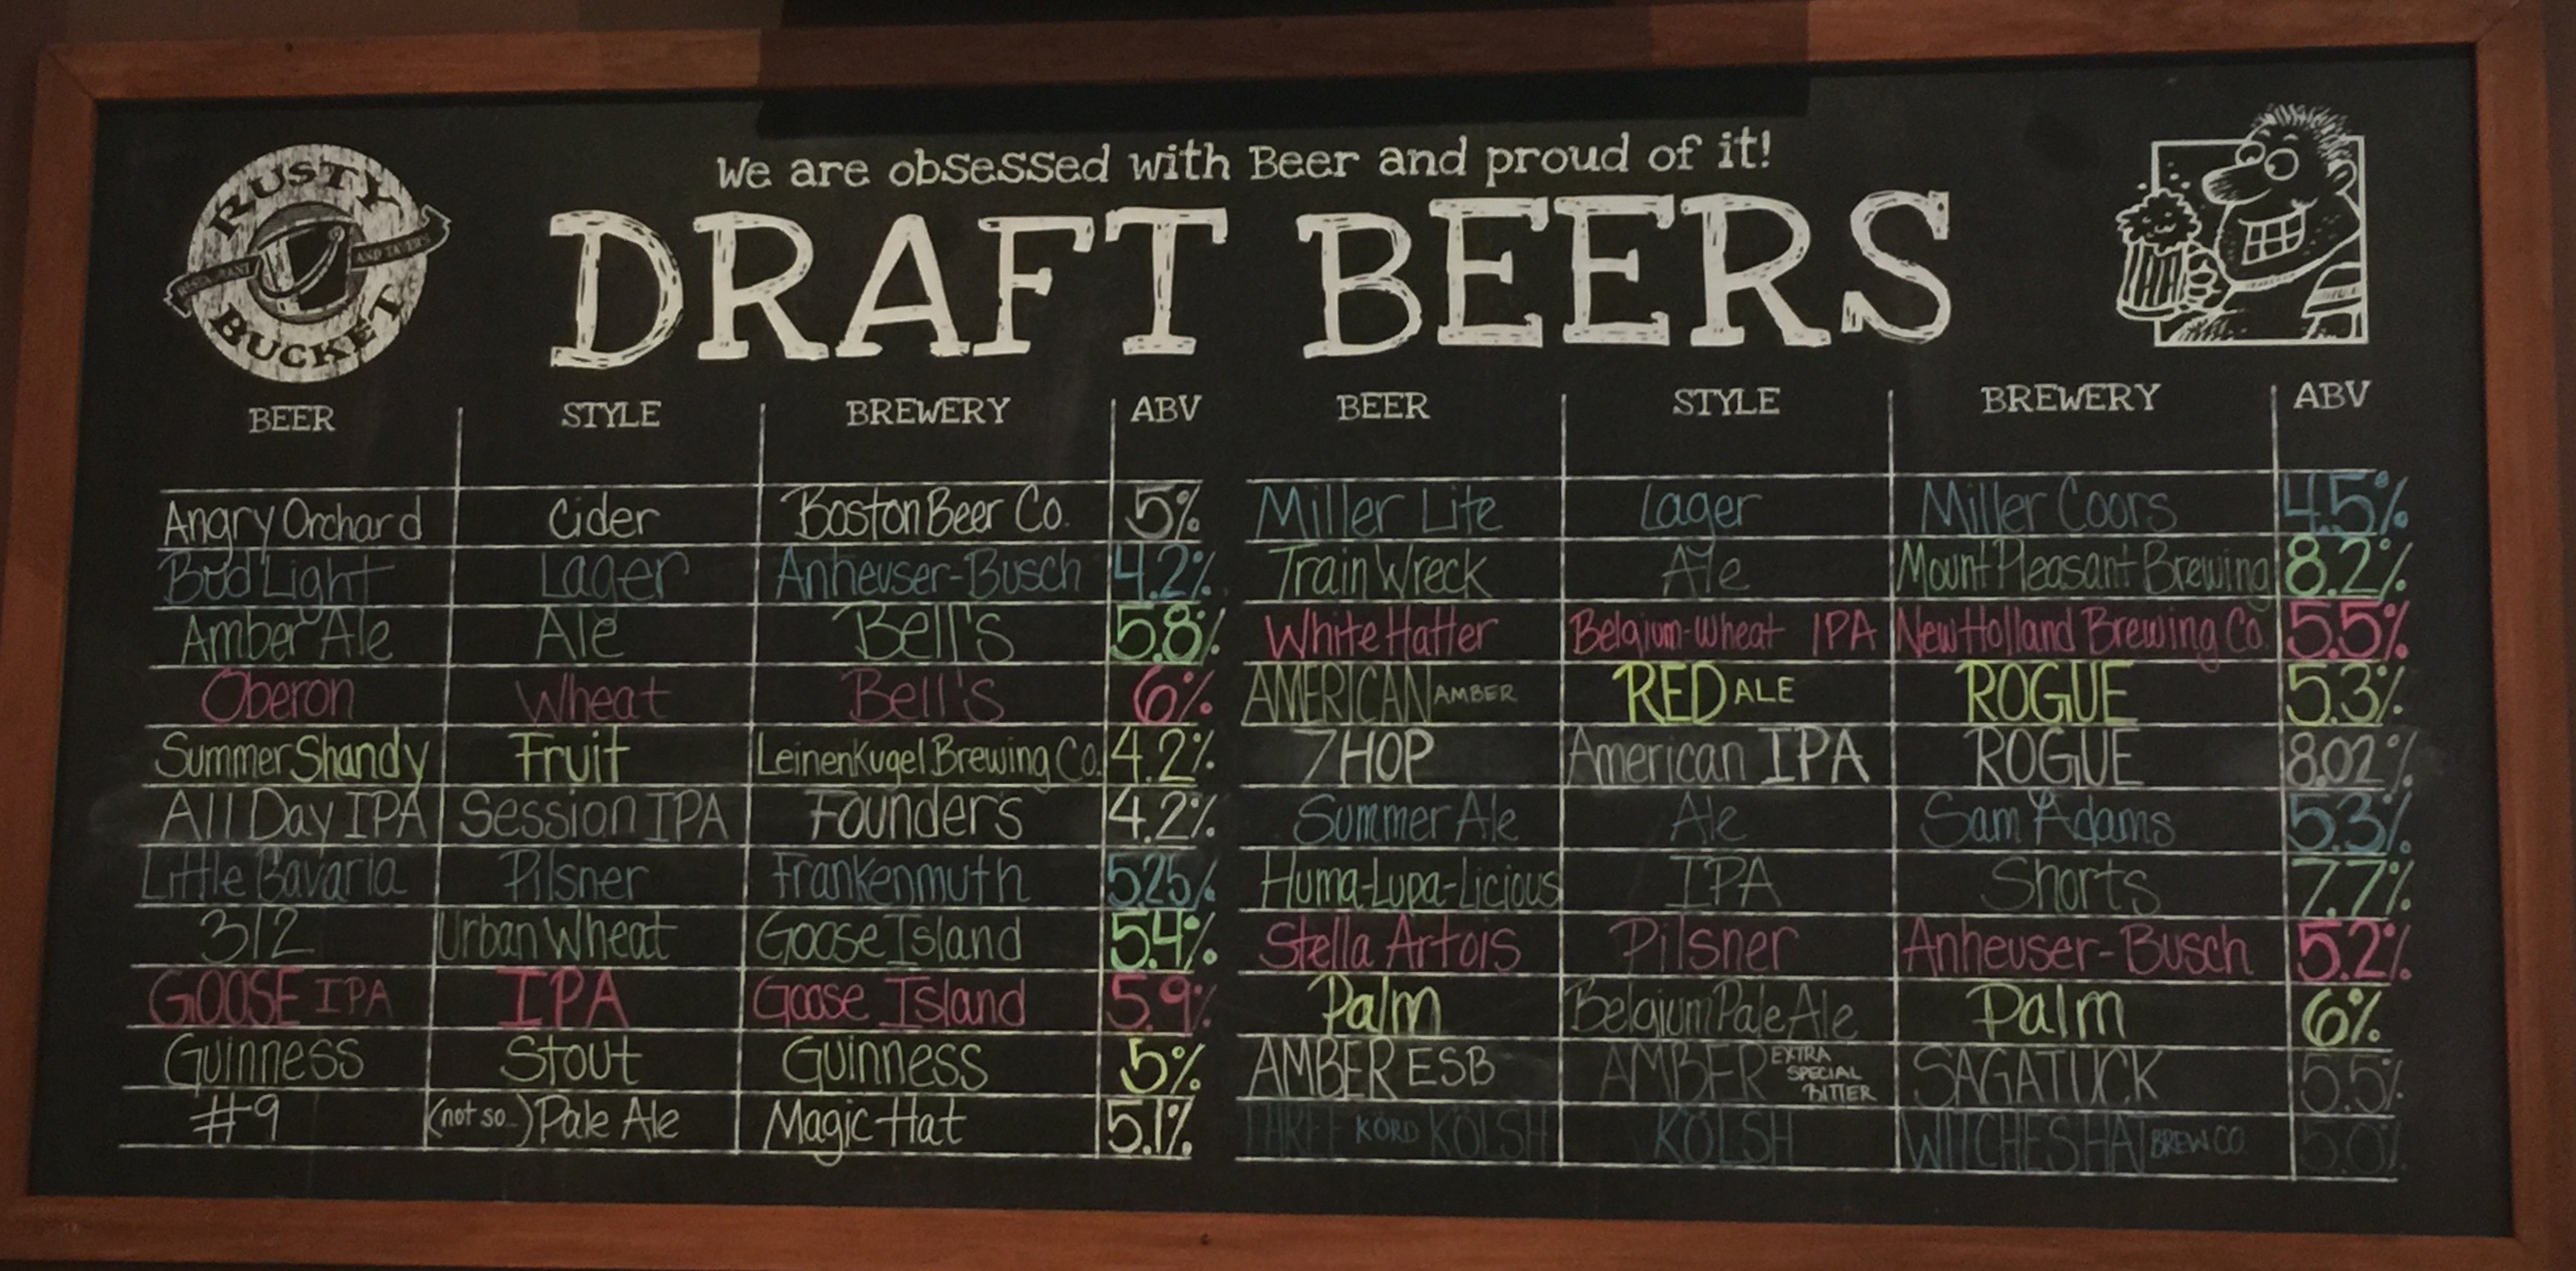 We are obsessed with Beer and proud of it!
RUSTY
RESTAURANT AND TAVERN
BUCKET
DRAFT BEERS
BEER STYLE BREWERY ABV
Angry Orchard Cider Boston Beer Co. 5%
Bud Light Lager Anheuser-Busch 4.2%
Amber Ale Ale Bell's 5.8%
Oberon Wheat Bell's 6%
Summer Shandy Fruit LeinenKugel Brewing Co. 4.2%
All Day IPA Session IPA Founder's 4.2%
Little Bavaria Pilsner Frankenmuth 5.25%
312 Urban Wheat Goose Island 5.4%
GOOSE IPA IPA Goose Island 5.9%
Guinness Stout Guinness 5%
#9 (not so..) Pale Ale Magic Hat 5.1%
BEER STYLE BREWERY ABV
Miller Lite Lager Miller Coors 4.5%
Train Wreck Ale Mount Pleasant Brewing 8.2%
White Hatter Belgium-Wheat IPA New Holland Brewing Co. 5.5%
AMERICAN AMBER RED ALE ROGUE 5.3%
7 HOP American IPA ROGUE 8.02%
Summer Ale Ale Sam Adams 5.3%
Huma-Lupa-Licious IPA Shorts 7.7%
Stella Artois Pilsner Anheuser-Busch 5.2%
Palm Belgium Pale Ale Palm 6%
AMBER ESB AMBER EXTRA SPECIAL BITTER SAGATUCK 5.5%
THREE KORD KOLSH KOLSH WITCHES HAT BREW CO. 5.0%